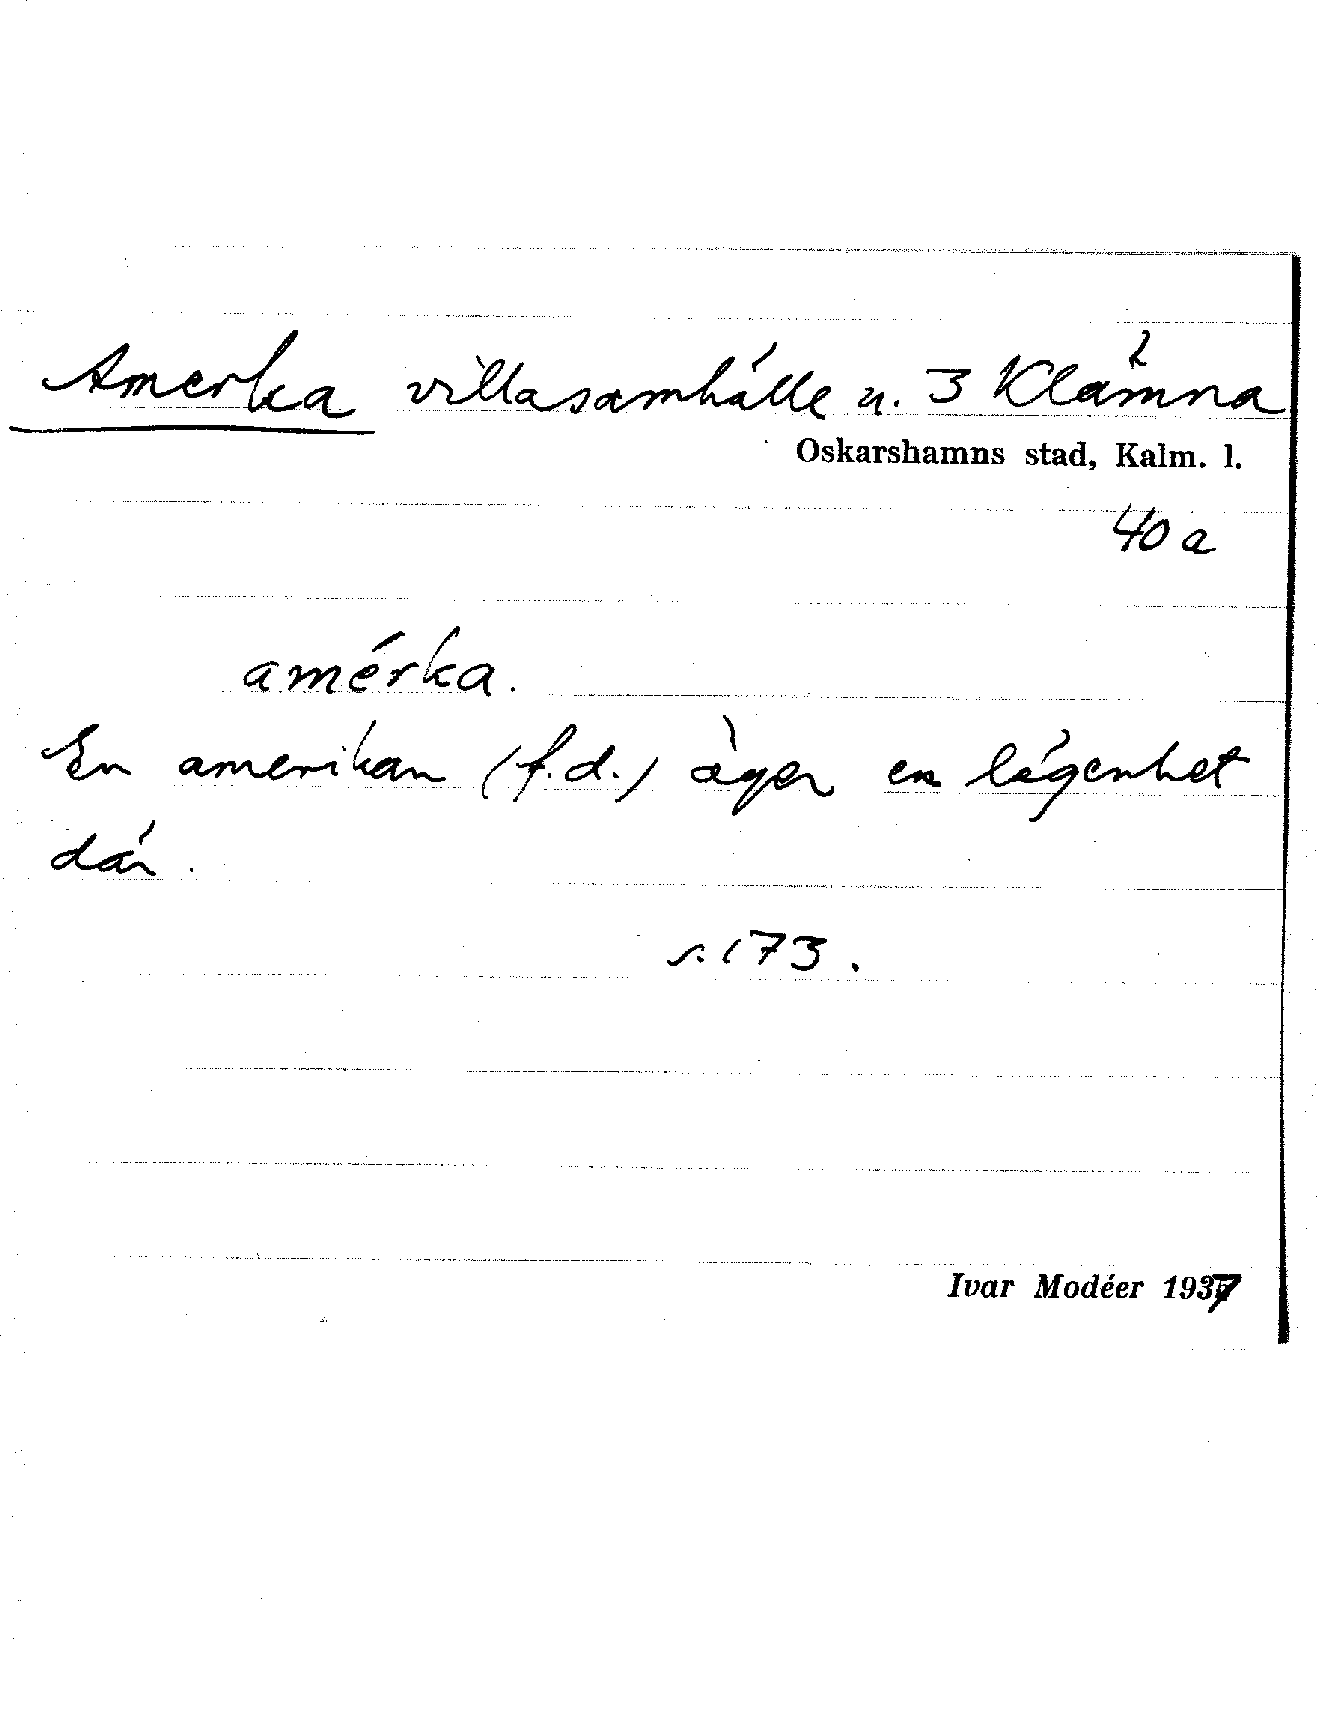 Amerka villasamhälle u. 3 Klämna
Oskarshamns stad, Kalm. l.
40 a
amérka.
En amerikan (f.d.) äger en lägenhet
där.
s. 173.
Ivar Modéer 1937